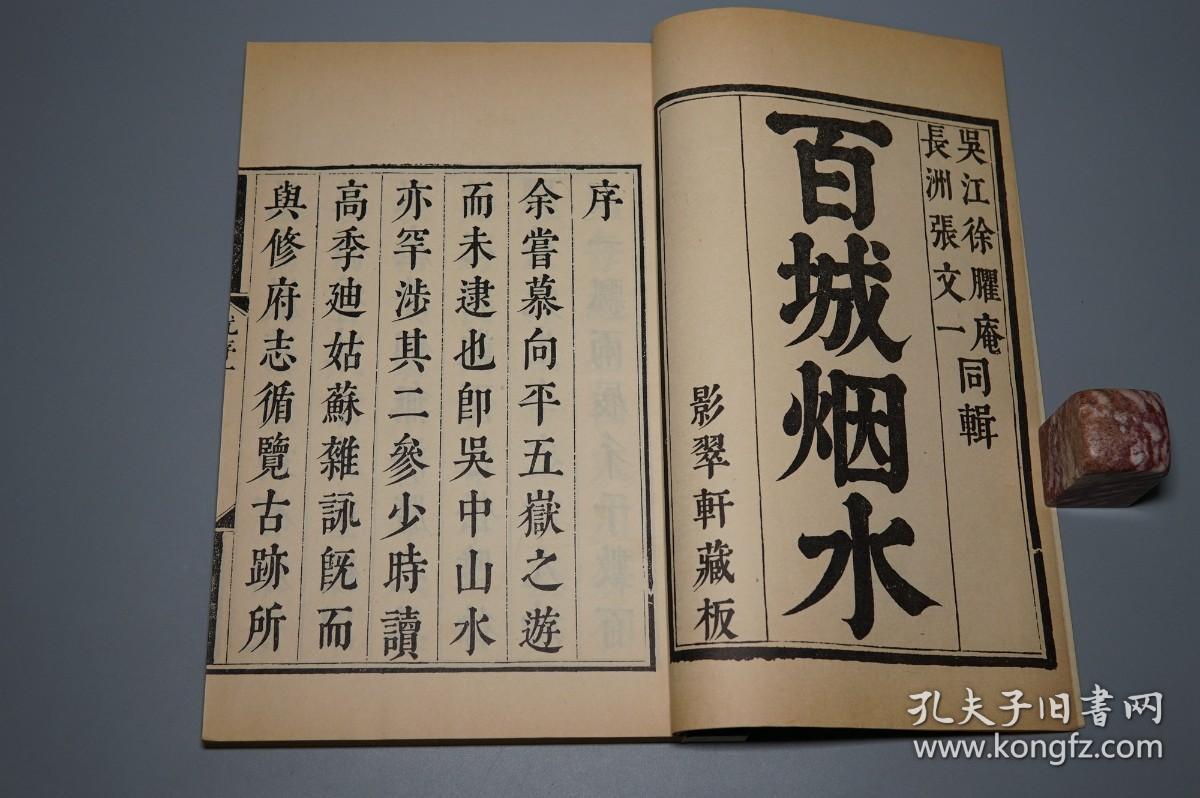 吳江徐臞庵同輯
長洲張文一
百城烟水
影翠軒藏板
序
余嘗慕向平五嶽之遊
而未逮也卽吳中山水
亦罕涉其二參少時讀
高季廸姑蘇雜詠旣而
與修府志循覽古跡所
孔夫子旧书网
www.kongfz.com